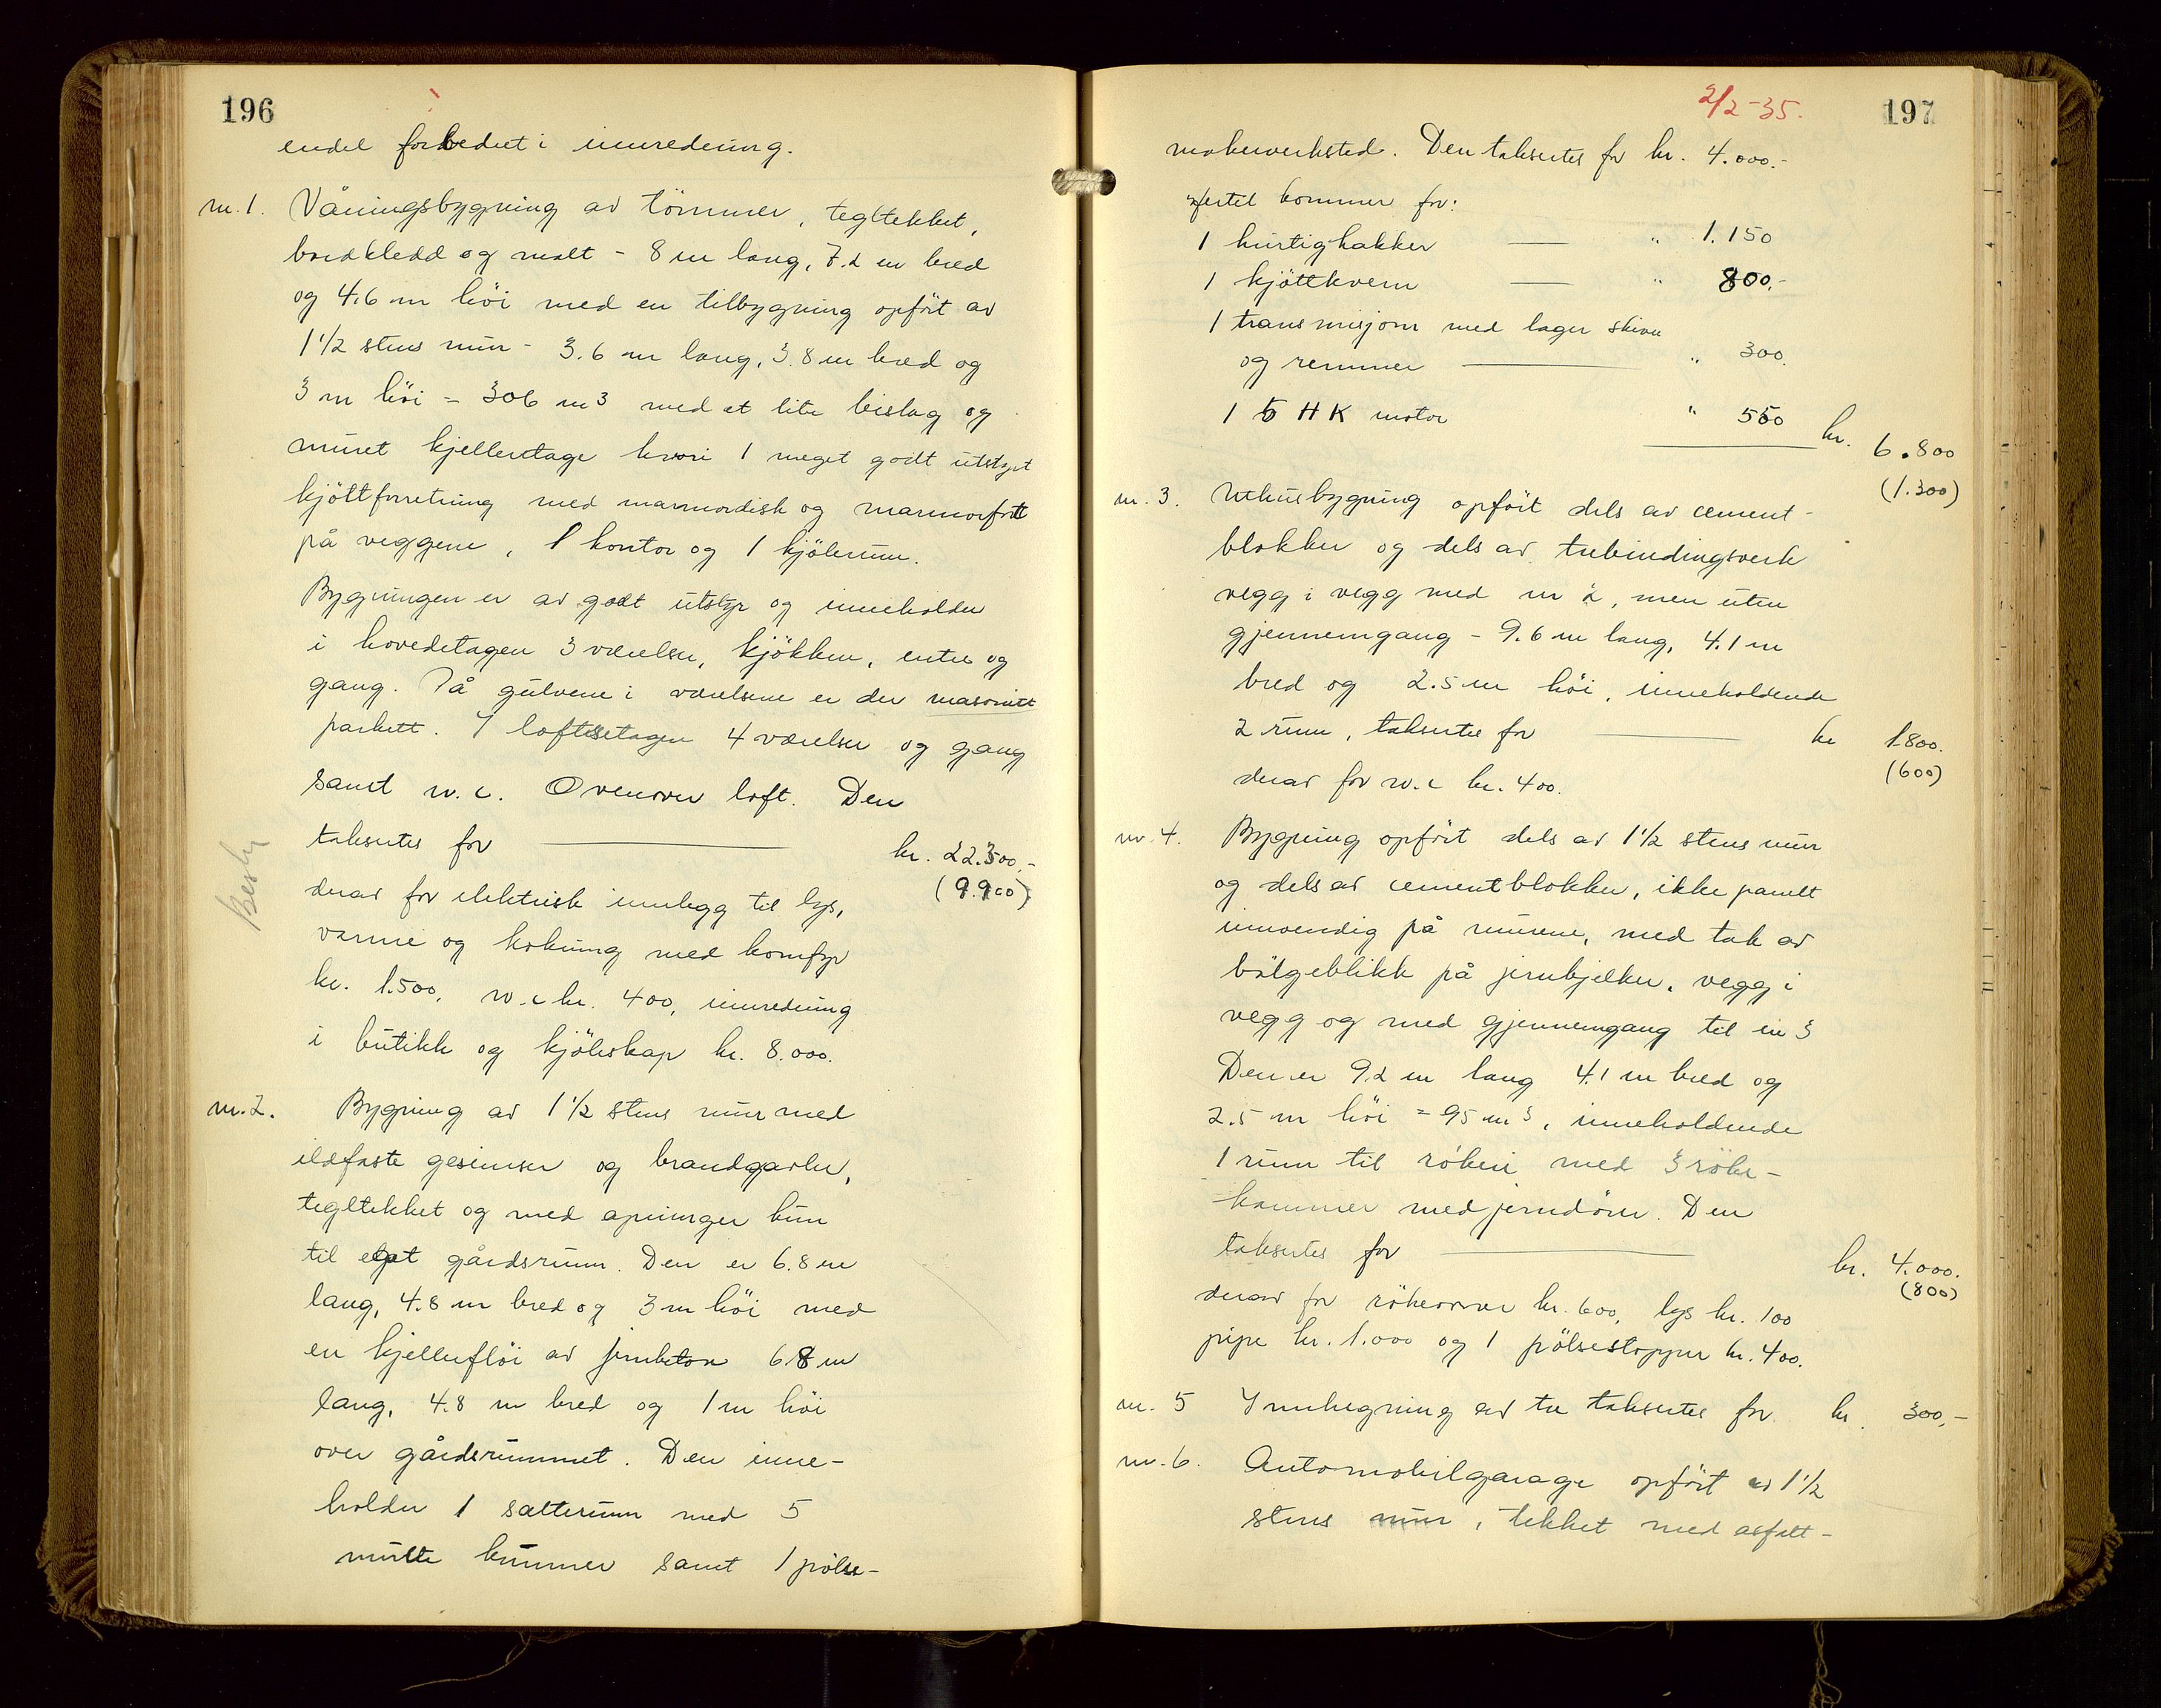 196
endel forbedret i innredning.
nr. 1. Våningsbygning av tömmer, tegltekket,
bordkledd og malt - 8 m lang, 7.2 m bred
og 4.6 m höi med en tilbygning opfört av
1 1/2 stens mur - 3.6 m lang, 3.8 m bred og
3 m höi = 306 m3 med et lite bislag og
muret kjelleretage hvori 1 meget godt utstyrt
kjöttforretning med marmordisk og marmor
på veggene, 1 kontor og 1 kjölerum.
Bygningen er av godt utstyr og inneholder
i hovedetagen 3 værelser, kjökken, entre og
gang. På gulvene i værelsene er der masonitt
parkett. I loftsetagen 4 værelser og gang
samt w.c. Ovenover loft. Den
takseres for kr. 22.300,-
(9.900)
derav for elektrisk innlegg til lys,
varme og kokning med komfyr
kr. 1.500, w.c kr. 400, innredning
i butikk og kjöleskap kr. 8.000.
nr. 2. Bygning av 1 1/2 stens mur med
ildfaste gesimser og brandgavler,
tegltekket og med apninger kun
til eget gårdsrum. Den er 6.8 m
lang, 4.8 m bred og 3 m höi med
en kjellerflöi av jernbeton 6.8 m
lang, 4.8 m bred og 1 m höi
over gårdsrummet. Den inne-
holder 1 salterum med 5
murte kummer samt 1 pölse-
2/2-35.
197
makerverksted. Den takseres for kr. 4.000.-
hertil kommer for:
1 hurtighakker " 1.150
1 kjöttkvern " 800.-
1 transmisjon med lager skiver
og remmer " 300.
1 5 HK motor " 550 kr. 6.800
(1.300)
nr. 3. Uthusbygning opfört dels av cement-
blokker og dels av trebindingsverk
vegg i vegg med nr 2, men uten
gjennemgang - 9.6 m lang, 4.1 m
bred og 2.5 m höi, inneholdende
2 rum, takseres for kr 1.800.
(600)
derav for w.c kr. 400.
nr. 4. Bygning opfört dels av 1 1/2 stens mur
og dels av cementblokker, ikke panelt
innvendig på murene, med tak av
bölgeblikk på jernbjelker, vegg i
vegg og med gjennemgang til nr 3
Den er 9.2 m lang 4.1 m bred og
2.5 m höi = 95 m3, inneholdende
1 rum til rökeri med 3 röke-
kammer med jerndörer. Den
takseres for kr. 4.000.
(800)
derav for rökeovner kr. 600, lys kr. 100
pipe kr. 1.000 og 1 pölsestopper kr. 400.
nr. 5 Innhegning av tre takseres for kr. 300,-
nr. 6. Automobilgarage opfört av 1 1/2
stens mur, tekket med asfalt-